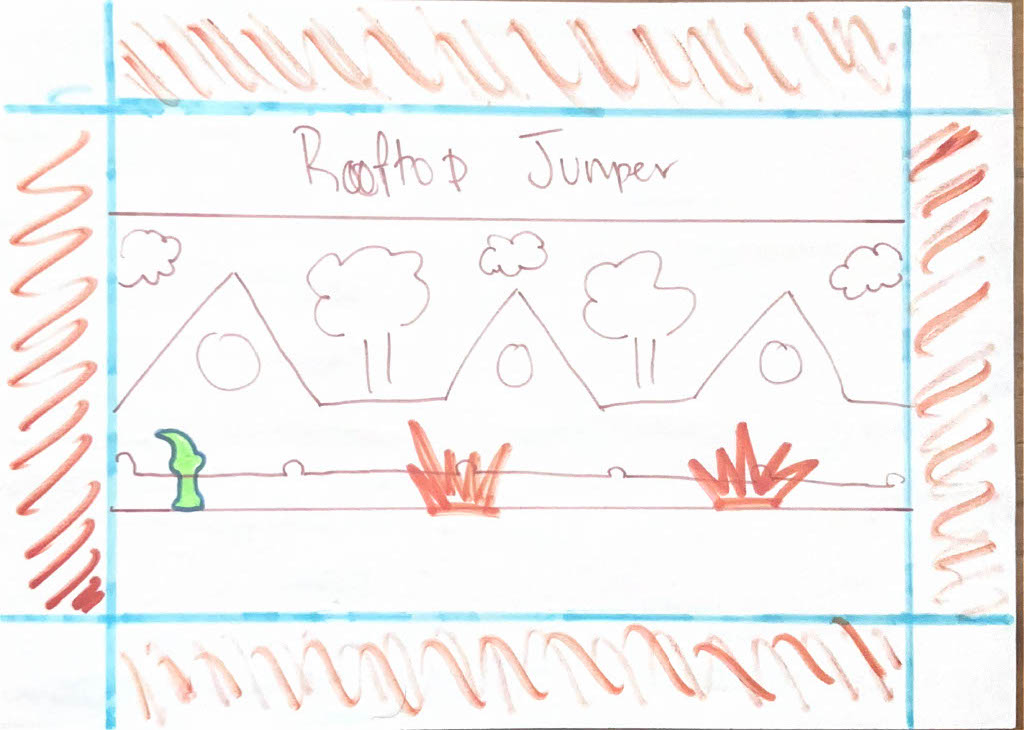 Rooftop Jumper